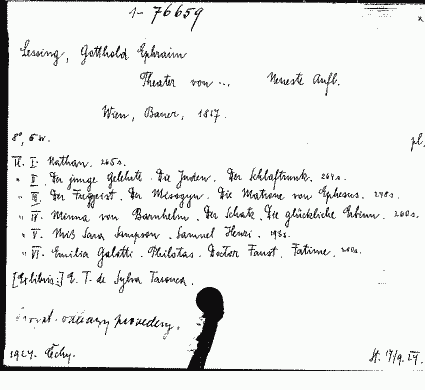 1- 76659
Lessing, Gotthold Ephraim
Theater von ... Neueste Aufl.
Wien, Bauer, 1817.
8°, 6 sv. pl.
Tl. I. Nathan. 265 s.
" II. Der junge Gelehrte. Die Juden. Der Schlaftrunk. 264 s.
" III. Der Freygeist. Der Misogyn. Die Matrone von Ephesus. 248 s.
" IV. Minna von Barnhelm. Der Schatz. Die glückliche Erbinn. 260 s.
" V. Miß Sara Sampson. Samuel Henzi. 196 s.
" VI. Emilia Galotti. Philotas. Doctor Faust. Fatime. 200 s.
[Exlibris:] E. T. de Sylva Tarouca.
provedeny.
1924. Čechy. 17/9. 27.